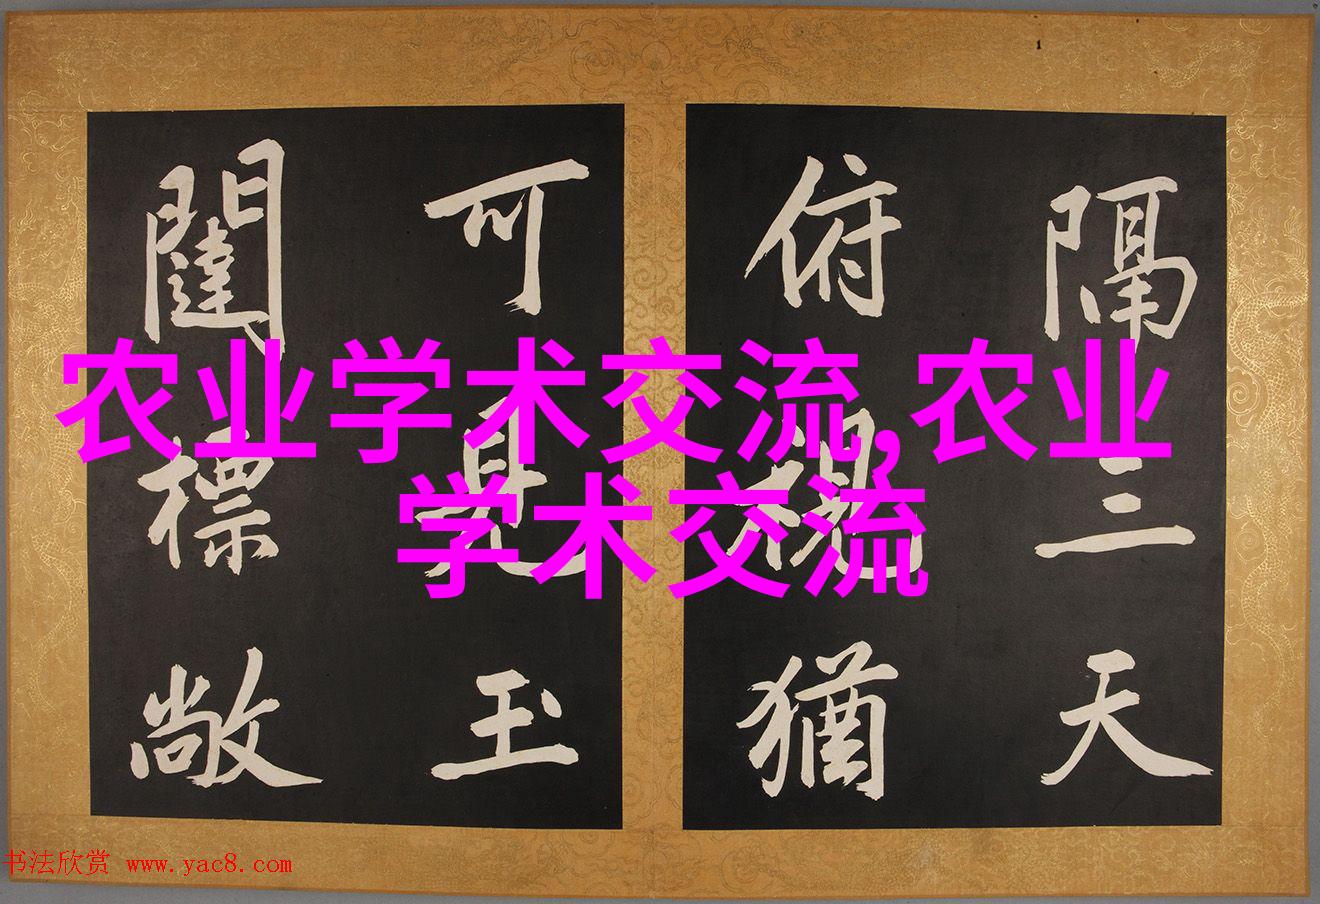 隔三天
俯視猶
可見玉
闥標敞
农业学术交流,农业
学术交流
书法欣赏 www.yac8.com